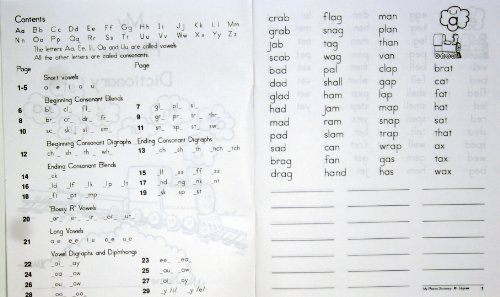 Contents
Aa Bb Cc Dd Ee Ff Gg Hh Ii Jj Kk Ll Mm
Nn Oo Pp Qq Rr Ss Tt Uu Vv Ww Xx Yy Zz
The letters Aa, Ee, Ii, Oo and Uu are called vowels
All the other letters are called consonants.
Page Page
Short vowels
1-5 a e i o u
Beginning Consonant Blends
6 bl_ cl_ fl_ 7 gl_ pl_ sl_
8 br_ cr_ dr_ fr_ 9 gr_ pr_ tr_ thr_
10 sc_ sk_ sl_ sm_ 11 sn_ sp_ st_ sw_
Beginning Consonant Digraphs Ending Consonant Digraphs
12 ch_ sh_ th_ wh_ 13 _ch _sh _th _nch _tch
Ending Consonant Blends
14 _ck 15 _ll _ss _ff _zz
16 _ld _lf _lk _lp _lt 17 _nd _ng _nk _nt
18 _ft _pt _mp 19 _sk _sp _st
'Bossy R' Vowels
20 _ar_ _er_ _ir_ _or_ _ur_
Long Vowels
21 a_e e_e i_e o_e u_e
Vowel Digraphs and Diphthongs
22 _ai _ay 23 ee_ _ea_
24 _oa _ow 25 _ou _ow
26 _oi _oy 27 _au _aw
28 _oo _oo_ 29 _y /i/ _y /e/
Dictionary
a
crab flag man
grab snag plan
jab tag than
scab wag van
bad pal clap brat
dad shall gap cat
glad ham lap fat
had jam map hat
mad ram snap sat
pad slam trap that
sad can wrap ax
brag fan gas tax
drag hand has wax
My Phonic Dictionary
1